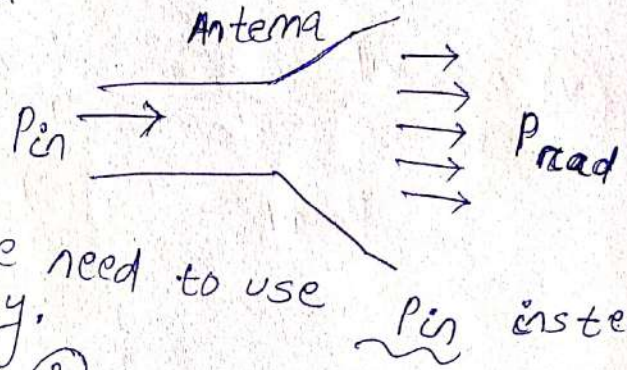 Antenna
Pin
Prad
e need to use Pin inste
y.